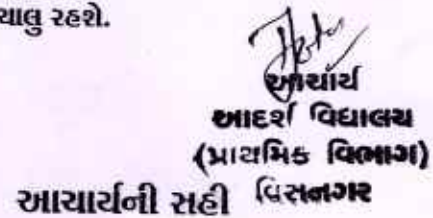 ચાલુ રહશે.
આચાર્ય
આદર્શ વિદ્યાલય
(પ્રાથમિક વિભાગ)
આચાર્યની સહી વિસનગર